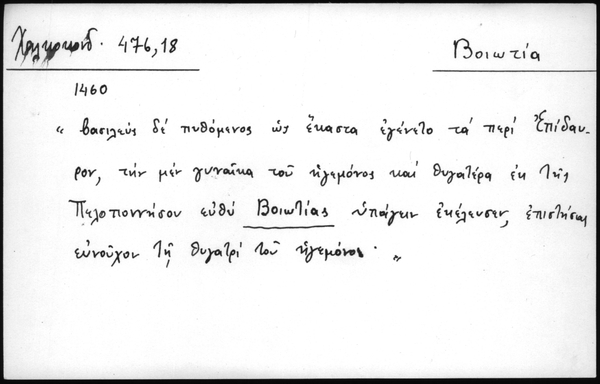 Χαλκοκονδ. 476,18 Βοιωτία
1460
" βασιλεύς δέ πυθόμενος ὡς ἕκαστα ἐγένετο τά περί Ἐπίδαυ-
ρον, τήν μέν γυναῖκα τοῦ ἡγεμόνος καί θυγατέρα ἐκ τῆς
Πελοποννήσου εὐθύ Βοιωτίας ὑπάγειν ἐκέλευσεν, ἐπιστήσας
εὐνοῦχον τῇ θυγατρί τοῦ ἡγεμόνος. "